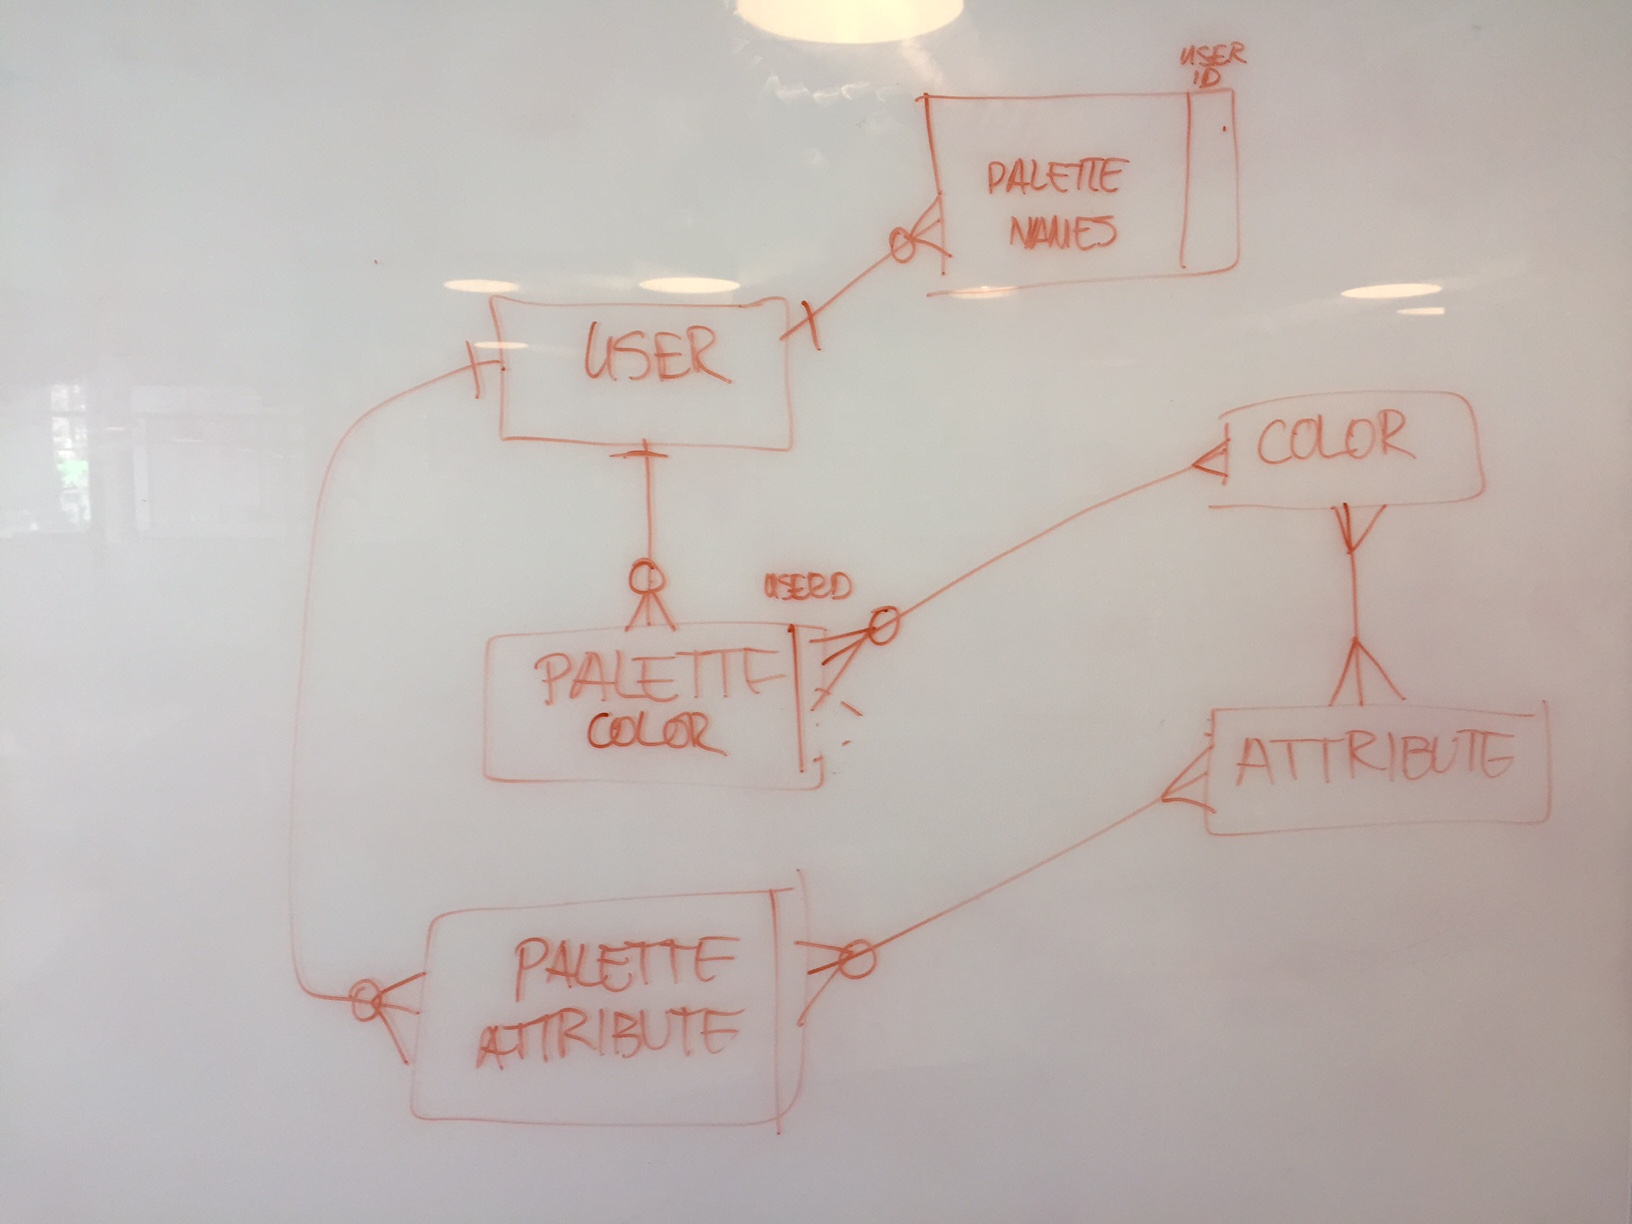 USER
ID
PALETTE
NAMES
USER
COLOR
USERID
PALETTE
COLOR
ATTRIBUTE
PALETTE
ATTRIBUTE